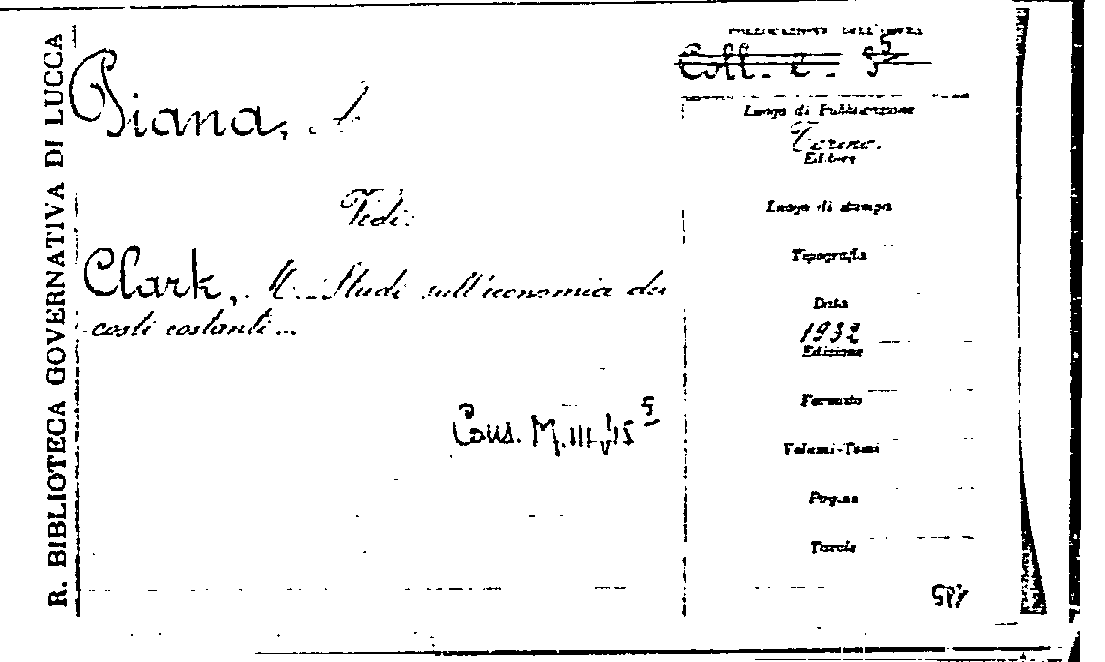 R. BIBLIOTECA GOVERNATIVA DI LUCCA
Piana,
Vedi:
Clark, M. Studi sull'economia dei
costi costanti...
Cons. M. III, 15 5
COLLOCAZIONE DELL'OPERA
Coll. C. 9 5
Luogo di Pubblicazione
Torino.
Editore
Luogo di stampa
Tipografia
Data
1932
Edizione
Formato
Volumi-Tomi
Pagine
Tavole